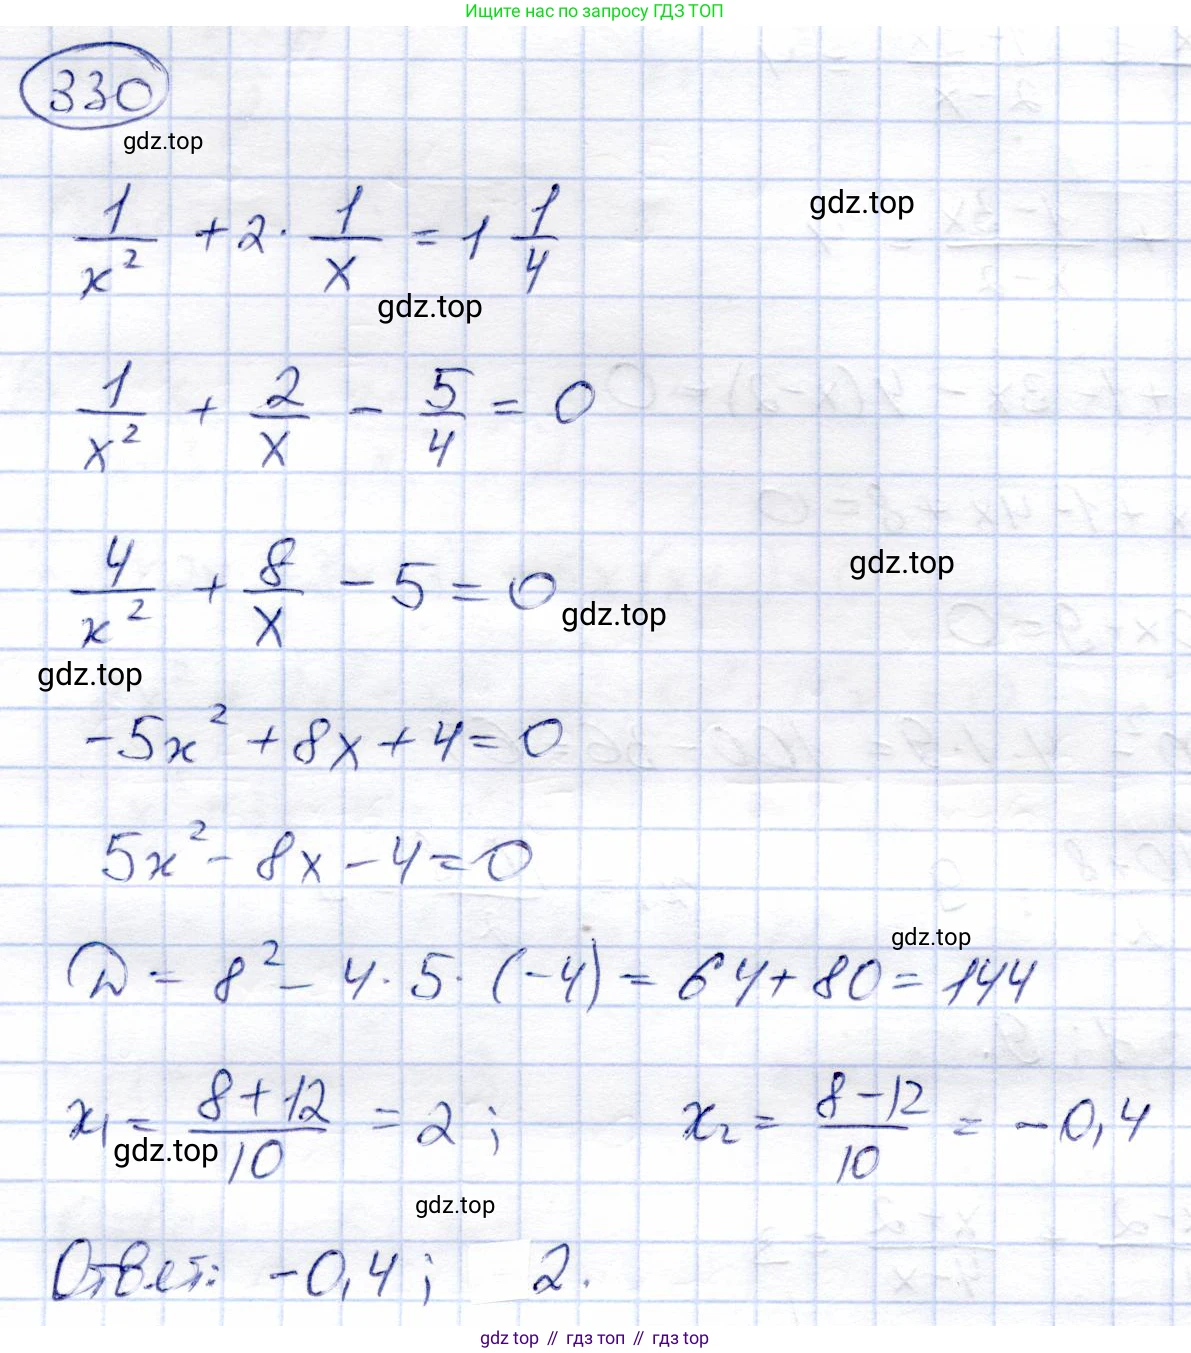 Ищите нас по запросу ГДЗ ТОП
330
gdz.top
1/x² + 2 · 1/x = 1 1/4
gdz.top
gdz.top
1/x² + 2/x - 5/4 = 0
4/x² + 8/x - 5 = 0
gdz.top
gdz.top
gdz.top
-5x² + 8x + 4 = 0
5x² - 8x - 4 = 0
gdz.top
D = 8² - 4 · 5 · (-4) = 64 + 80 = 144
x₁ = (8 + 12)/10 = 2; x₂ = (8 - 12)/10 = -0,4
gdz.top
gdz.top
Ответ: -0,4; 2.
gdz top // гдз топ // gdz top